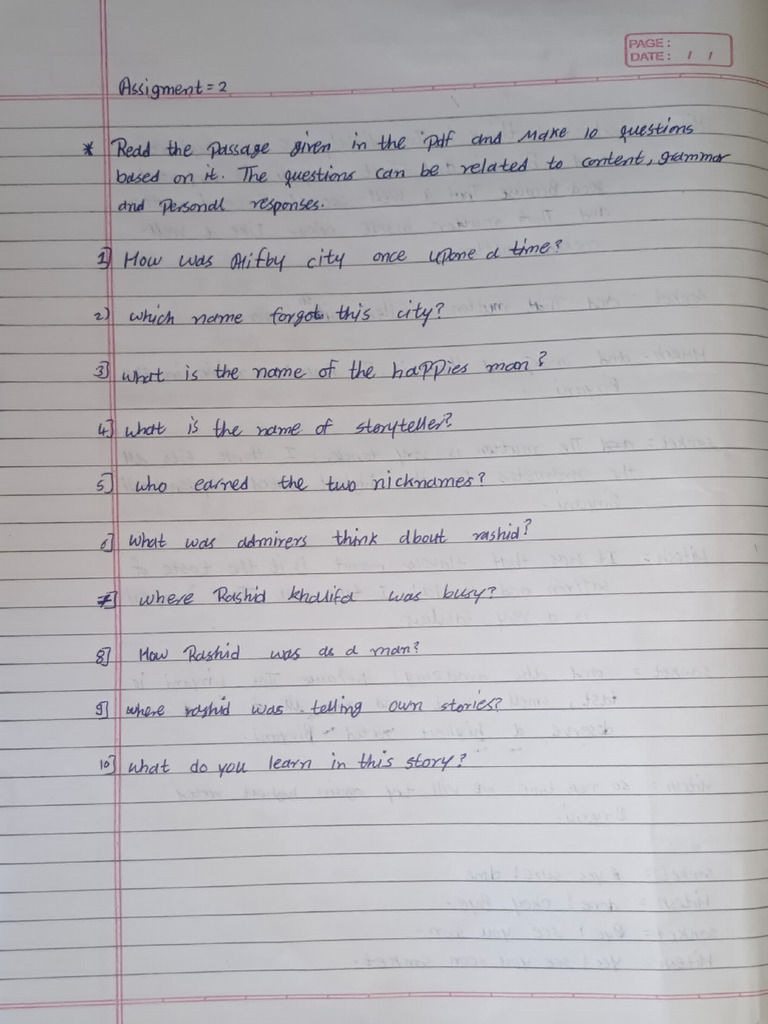 PAGE:
DATE: / /
Assigment = 2
* Read the passage given in the pdf and make 10 questions
based on it. The questions can be related to content, grammar
and personal responses.
1] How was city once upone a time?
2) which name forgot this city?
3] what is the name of the happies man?
4] what is the name of storyteller?
5] who earned the two nicknames?
6] what was admirers think about rashid?
7] where Rashid khalifa was busy?
8] How Rashid was as a man?
9] where rashid was telling own stories?
10] what do you learn in this story?